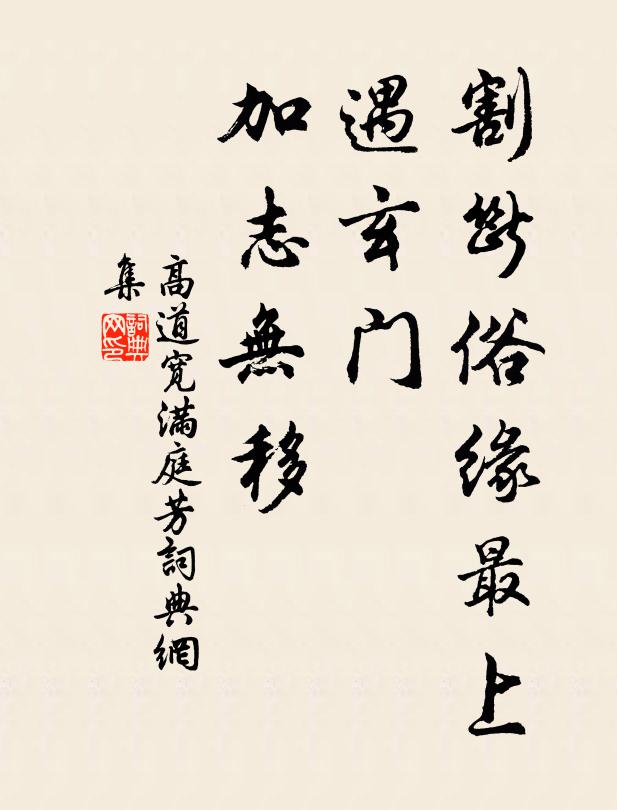 割斷俗緣最上
遇玄門
加志無移
高道寬滿庭芳詞典網
集
詞典網印